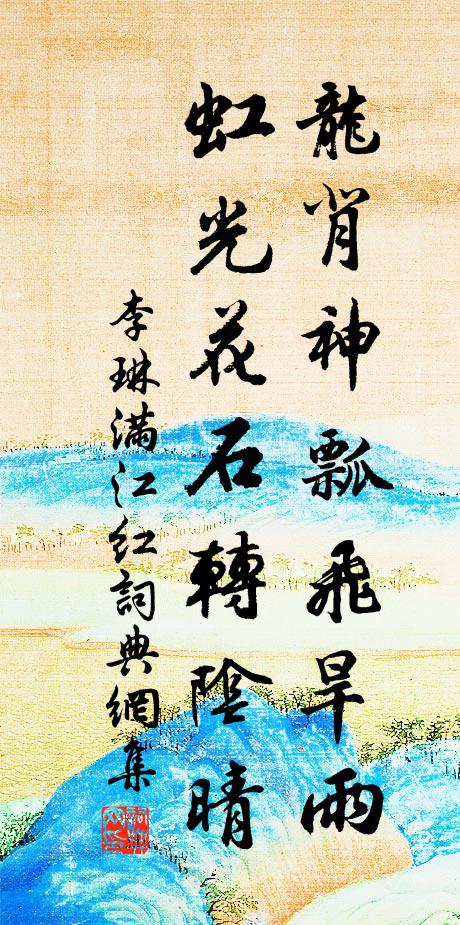 龍背神瓢飛旱雨
虹光花石轉陰晴
李琳满江红詞典網集